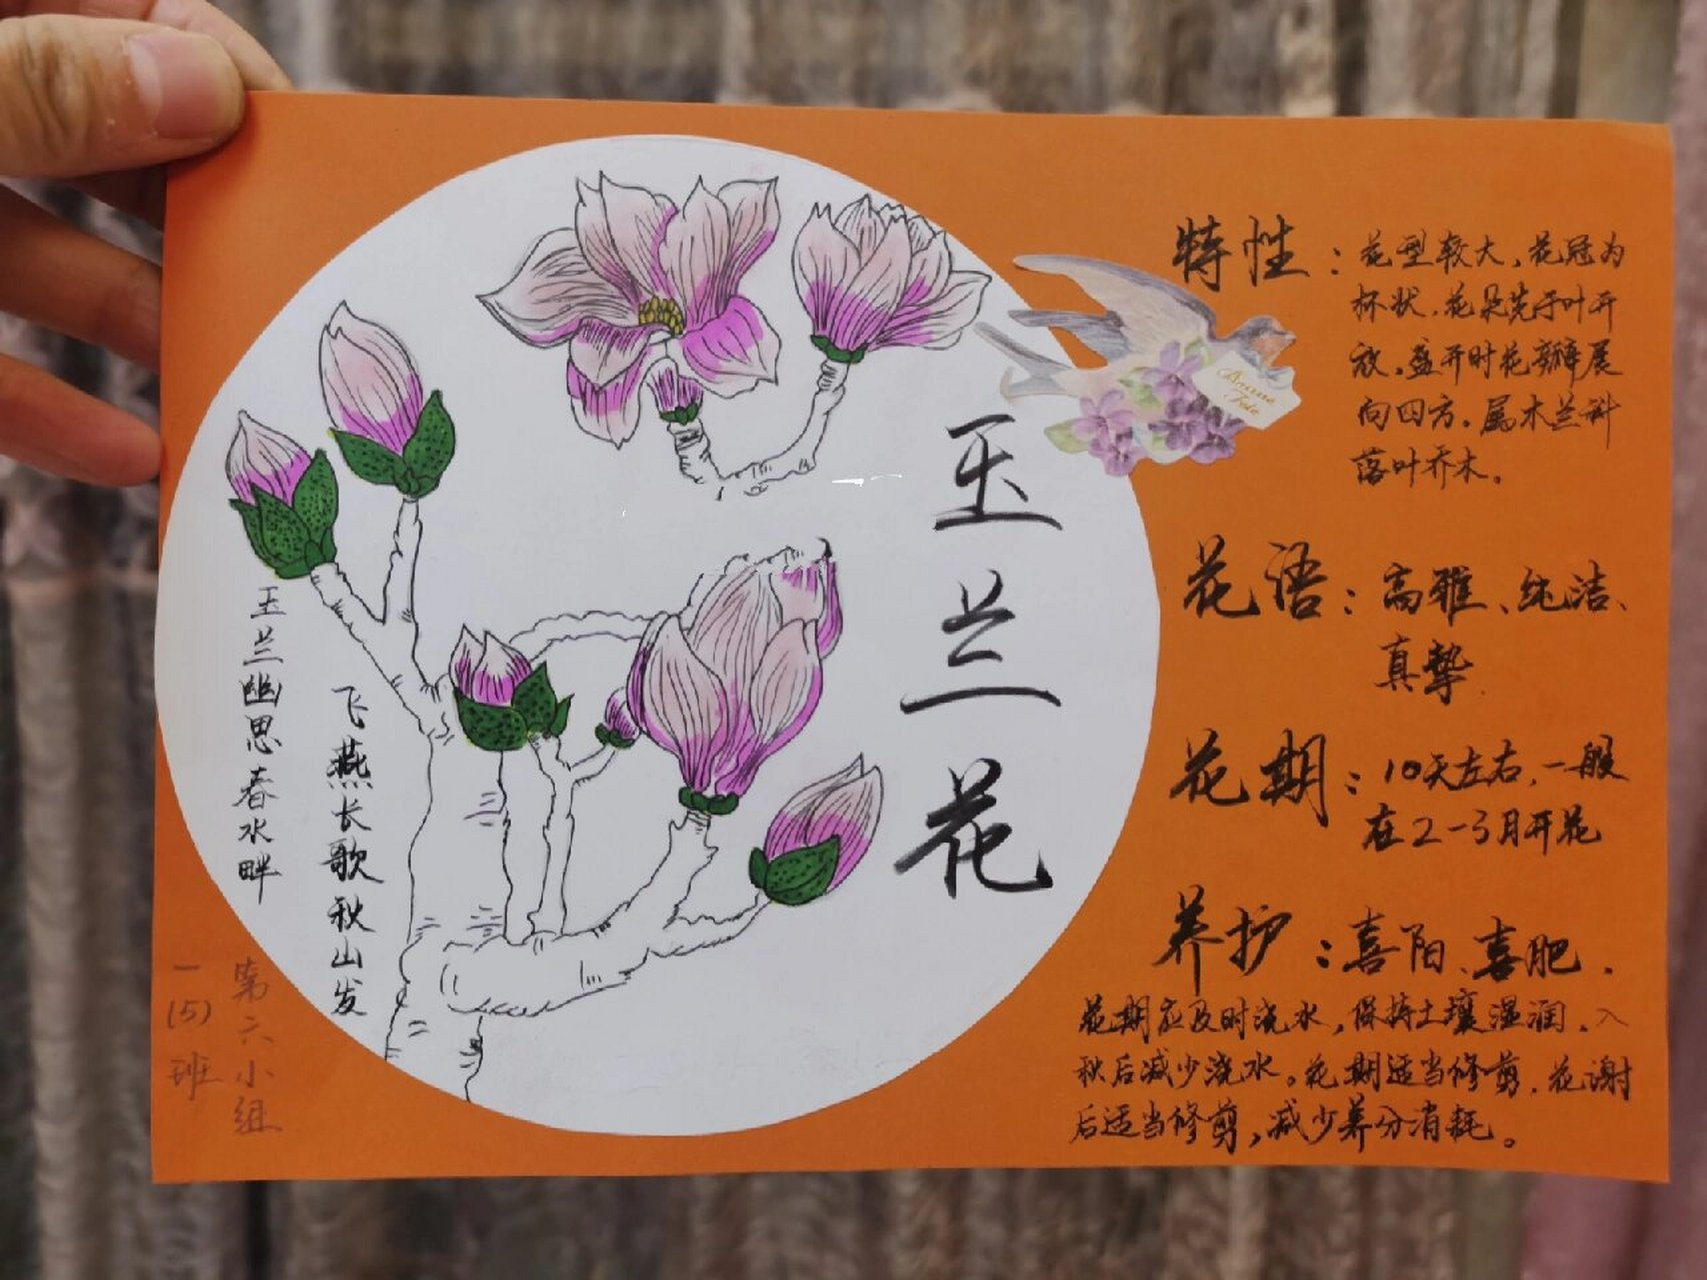 玉兰花
玉兰幽思春水畔
飞燕长歌秋山发
一(5)班
第六小组
特性：花型较大，花冠为
杯状，花朵先于叶开
放，盛开时花瓣展
向四方。属木兰科
落叶乔木。
花语：高雅、纯洁、
真挚
花期：10天左右，一般
在2-3月开花
养护：喜阳、喜肥，
花期应及时浇水，保持土壤湿润，入
秋后减少浇水。花期适当修剪，花谢
后适当修剪，减少养分消耗。